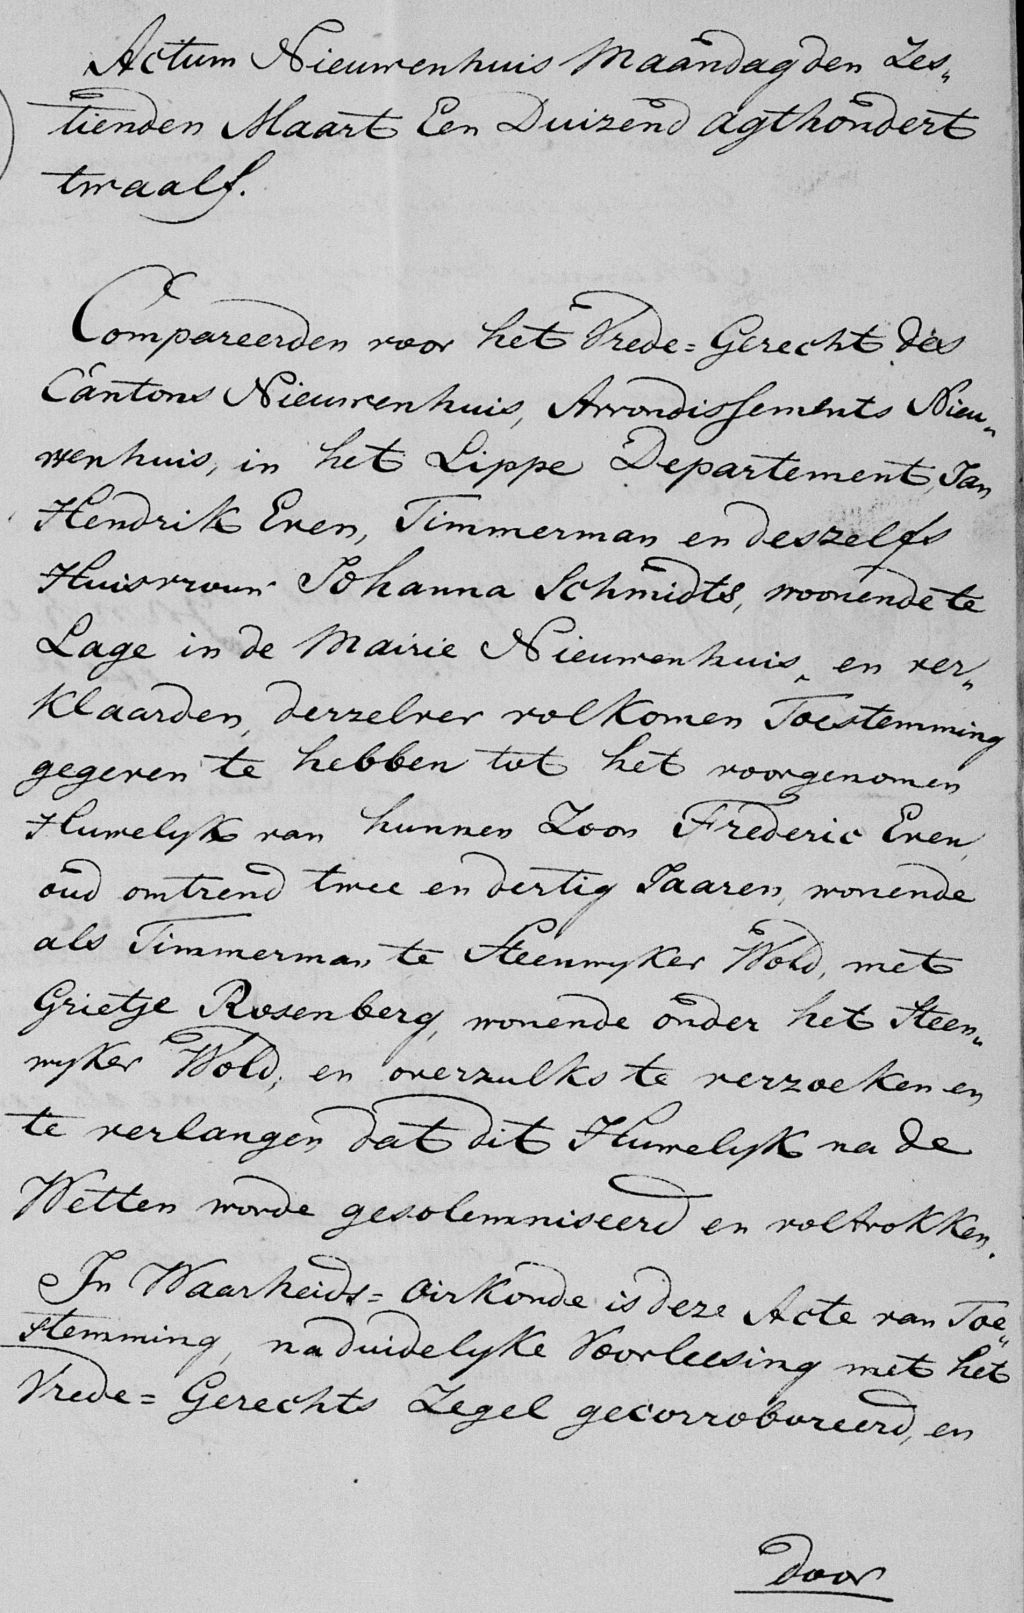 Actum Nieuwenhuis Maandag den Zes„
tienden Maart Een Duizend agthondert
twaalf.
Compareerden voor het Vrede= Gerecht des
Cantons Nieuwenhuis, Arrondissements Nieu„
wenhuis, in het Lippe Departement, Jan
Hendrik Even, Timmerman en deszelfs
Huisvrouw Johanna Schmidts, woonende te
Lage in de Mairie Nieuwenhuis, en ver„
klaarden, derzelver volkomen Toestemming
gegeven te hebben tot het voorgenomen
Huwelijk van hunnen Zoon Frederic Even,
oud omtrend twee en dertig Jaaren, wonende
als Timmerman te Steenwyker Wold, met
Grietje Rosenberg, wonende onder het Steen„
wyker Wold; en overzulks te verzoeken en
te verlangen dat dit Huwelijk na de
Wetten worde gesolemniseerd en voltrokken.
In Waarheids= Oirkonde is deze Acte van Toe„
stemming, na duidelyke Voorleesing met het
Vrede= Gerechts Zegel gecorroboreerd, en
door